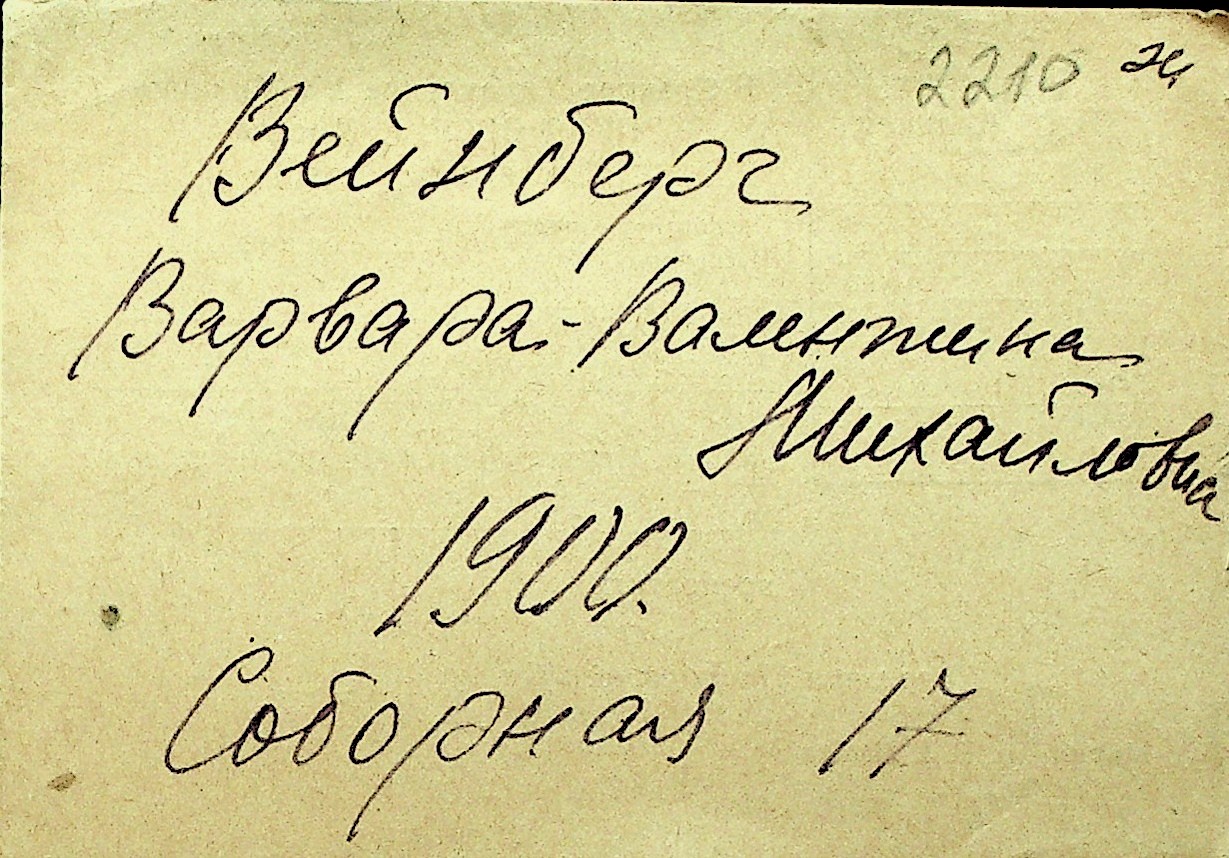 2210 ж
Вейнберг
Варвара-Валентина
Михайловна
1900.
Соборная 17